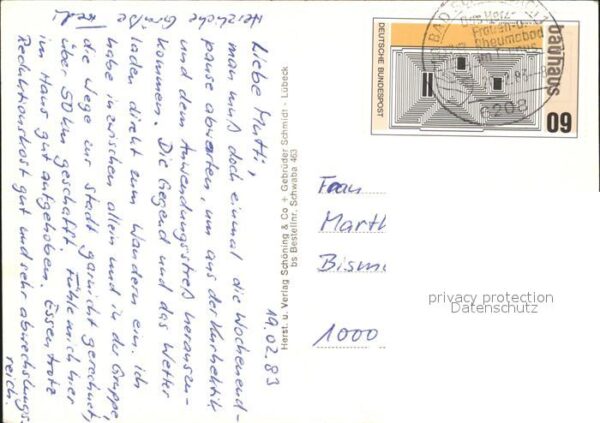 19.02.83
Liebe Mutti,
man muß doch einmal die Wochenend-
pause abwarten, um aus der Kurhektik
und dem Anwendungsstreß herauszu-
kommen. Die Gegend und das Wetter
laden direkt zum Wandern ein. Ich
habe inzwischen allein und in der Gruppe,
die Wege zur Stadt garnicht gerechnet,
über 50 km geschafft. Fühle mich hier
im Haus gut aufgehoben. Essen trotz
Reduktionskost gut und sehr abwechslungs-
reich.
Herzliche Grüße
Herst. u. Verlag Schöning & Co + Gebrüder Schmidt · Lübeck
bs Bestellnr. Schwaba 463
DEUTSCHE BUNDESPOST
bauhaus
60
BAD
Das Herz-
Frauen-u.
Rheumabad
im Taunus
6208
Frau
Marth
Bism
1000
privacy protection
Datenschutz